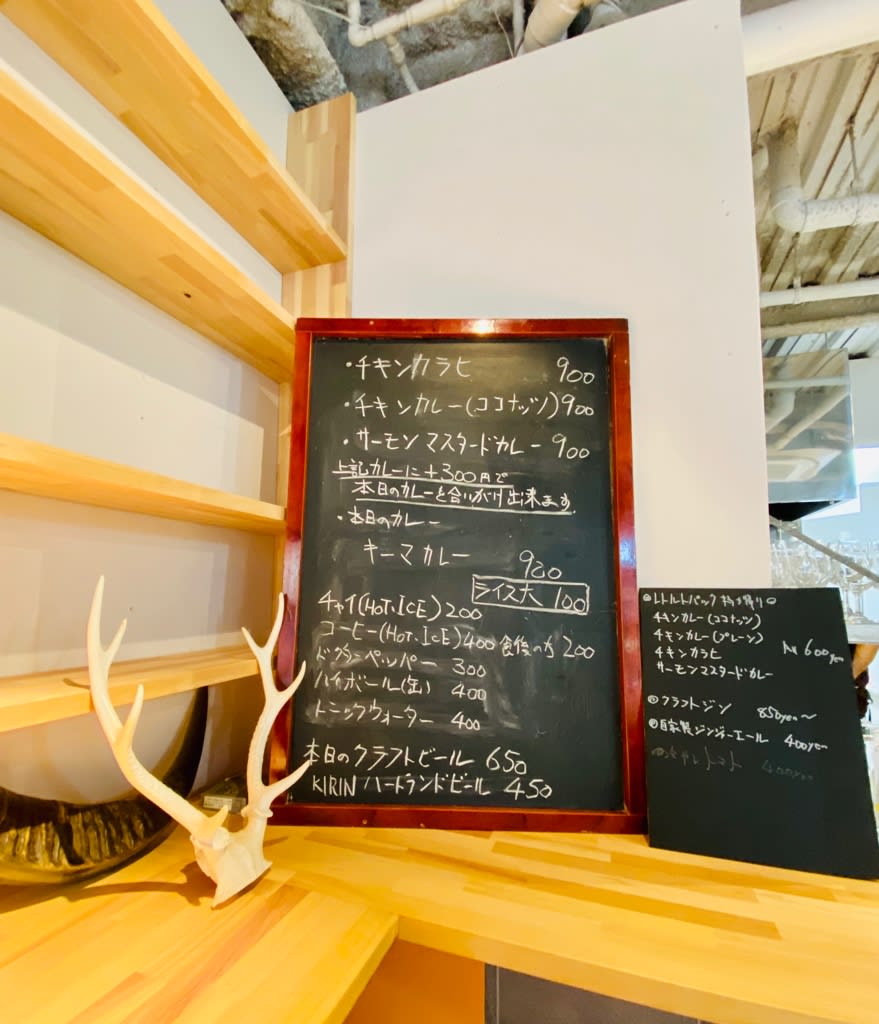 ・チキンカラヒ 900
・チキンカレー(ココナッツ)900
・サーモンマスタードカレー 900
上記カレーに+300円で
本日のカレーと合いがけ出来ます。
・本日のカレー
キーマカレー 900
ライス大 100
チャイ(HOT.ICE) 200
コーヒー(HOT.ICE)400 食後の方 200
ドクターペッパー 300
ハイボール(缶) 400
トニックウォーター 400
本日のクラフトビール 650
KIRIN ハートランドビール 450
レトルトパック 持ち帰り
チキンカレー(ココナッツ)
チキンカレー(プレーン)
チキンカラヒ All 600yen
サーモンマスタードカレー
クラフトジン 850yen〜
自家製ジンジャーエール 400yen
400yen